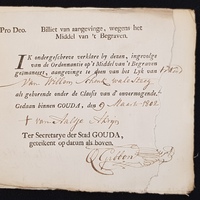 Pro Deo. Billiet van aangevinge, wegens het
Middel van 't Begraven.
IK ondergeschreve verklare by dezen, ingevolge
van de Ordonnantie op 't Middel van 't Begraven
geëmaneert, aangevinge te doen van het Lyk van
van Willem
als gehorende onder de Classis van d' onvermogende.
Gedaan binnen GOUDA, den 9 Maart 1802
Ter Secretarye der Stad GOUDA,
geteekent op datum als boven.